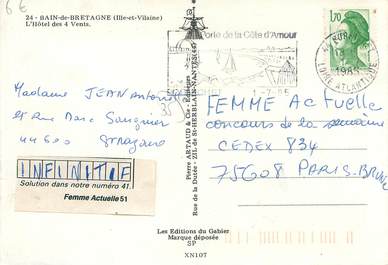 6€
24 - BAIN-de-BRETAGNE (Ille-et-Vilaine)
L'Hôtel des 4 Vents.
Porte de la Côte d'Amour
1-7-85
1,70
LOIRE ATLANTIQUE
Madame JEAN Antoine
Rue Marc Sangnier
44600
INFINITIF
Solution dans notre numéro 41.
Femme Actuelle 51
Pierre ARTAUD & Cie, Editeurs
Rue de la Durée - ZIL de St-HERBLAIN-NANTES (44)
FEMME Actuelle
concours de la semaine
CEDEX 834
75608 PARIS-BRUNE
Les Editions du Gabier
Marque déposée
SP
XN107